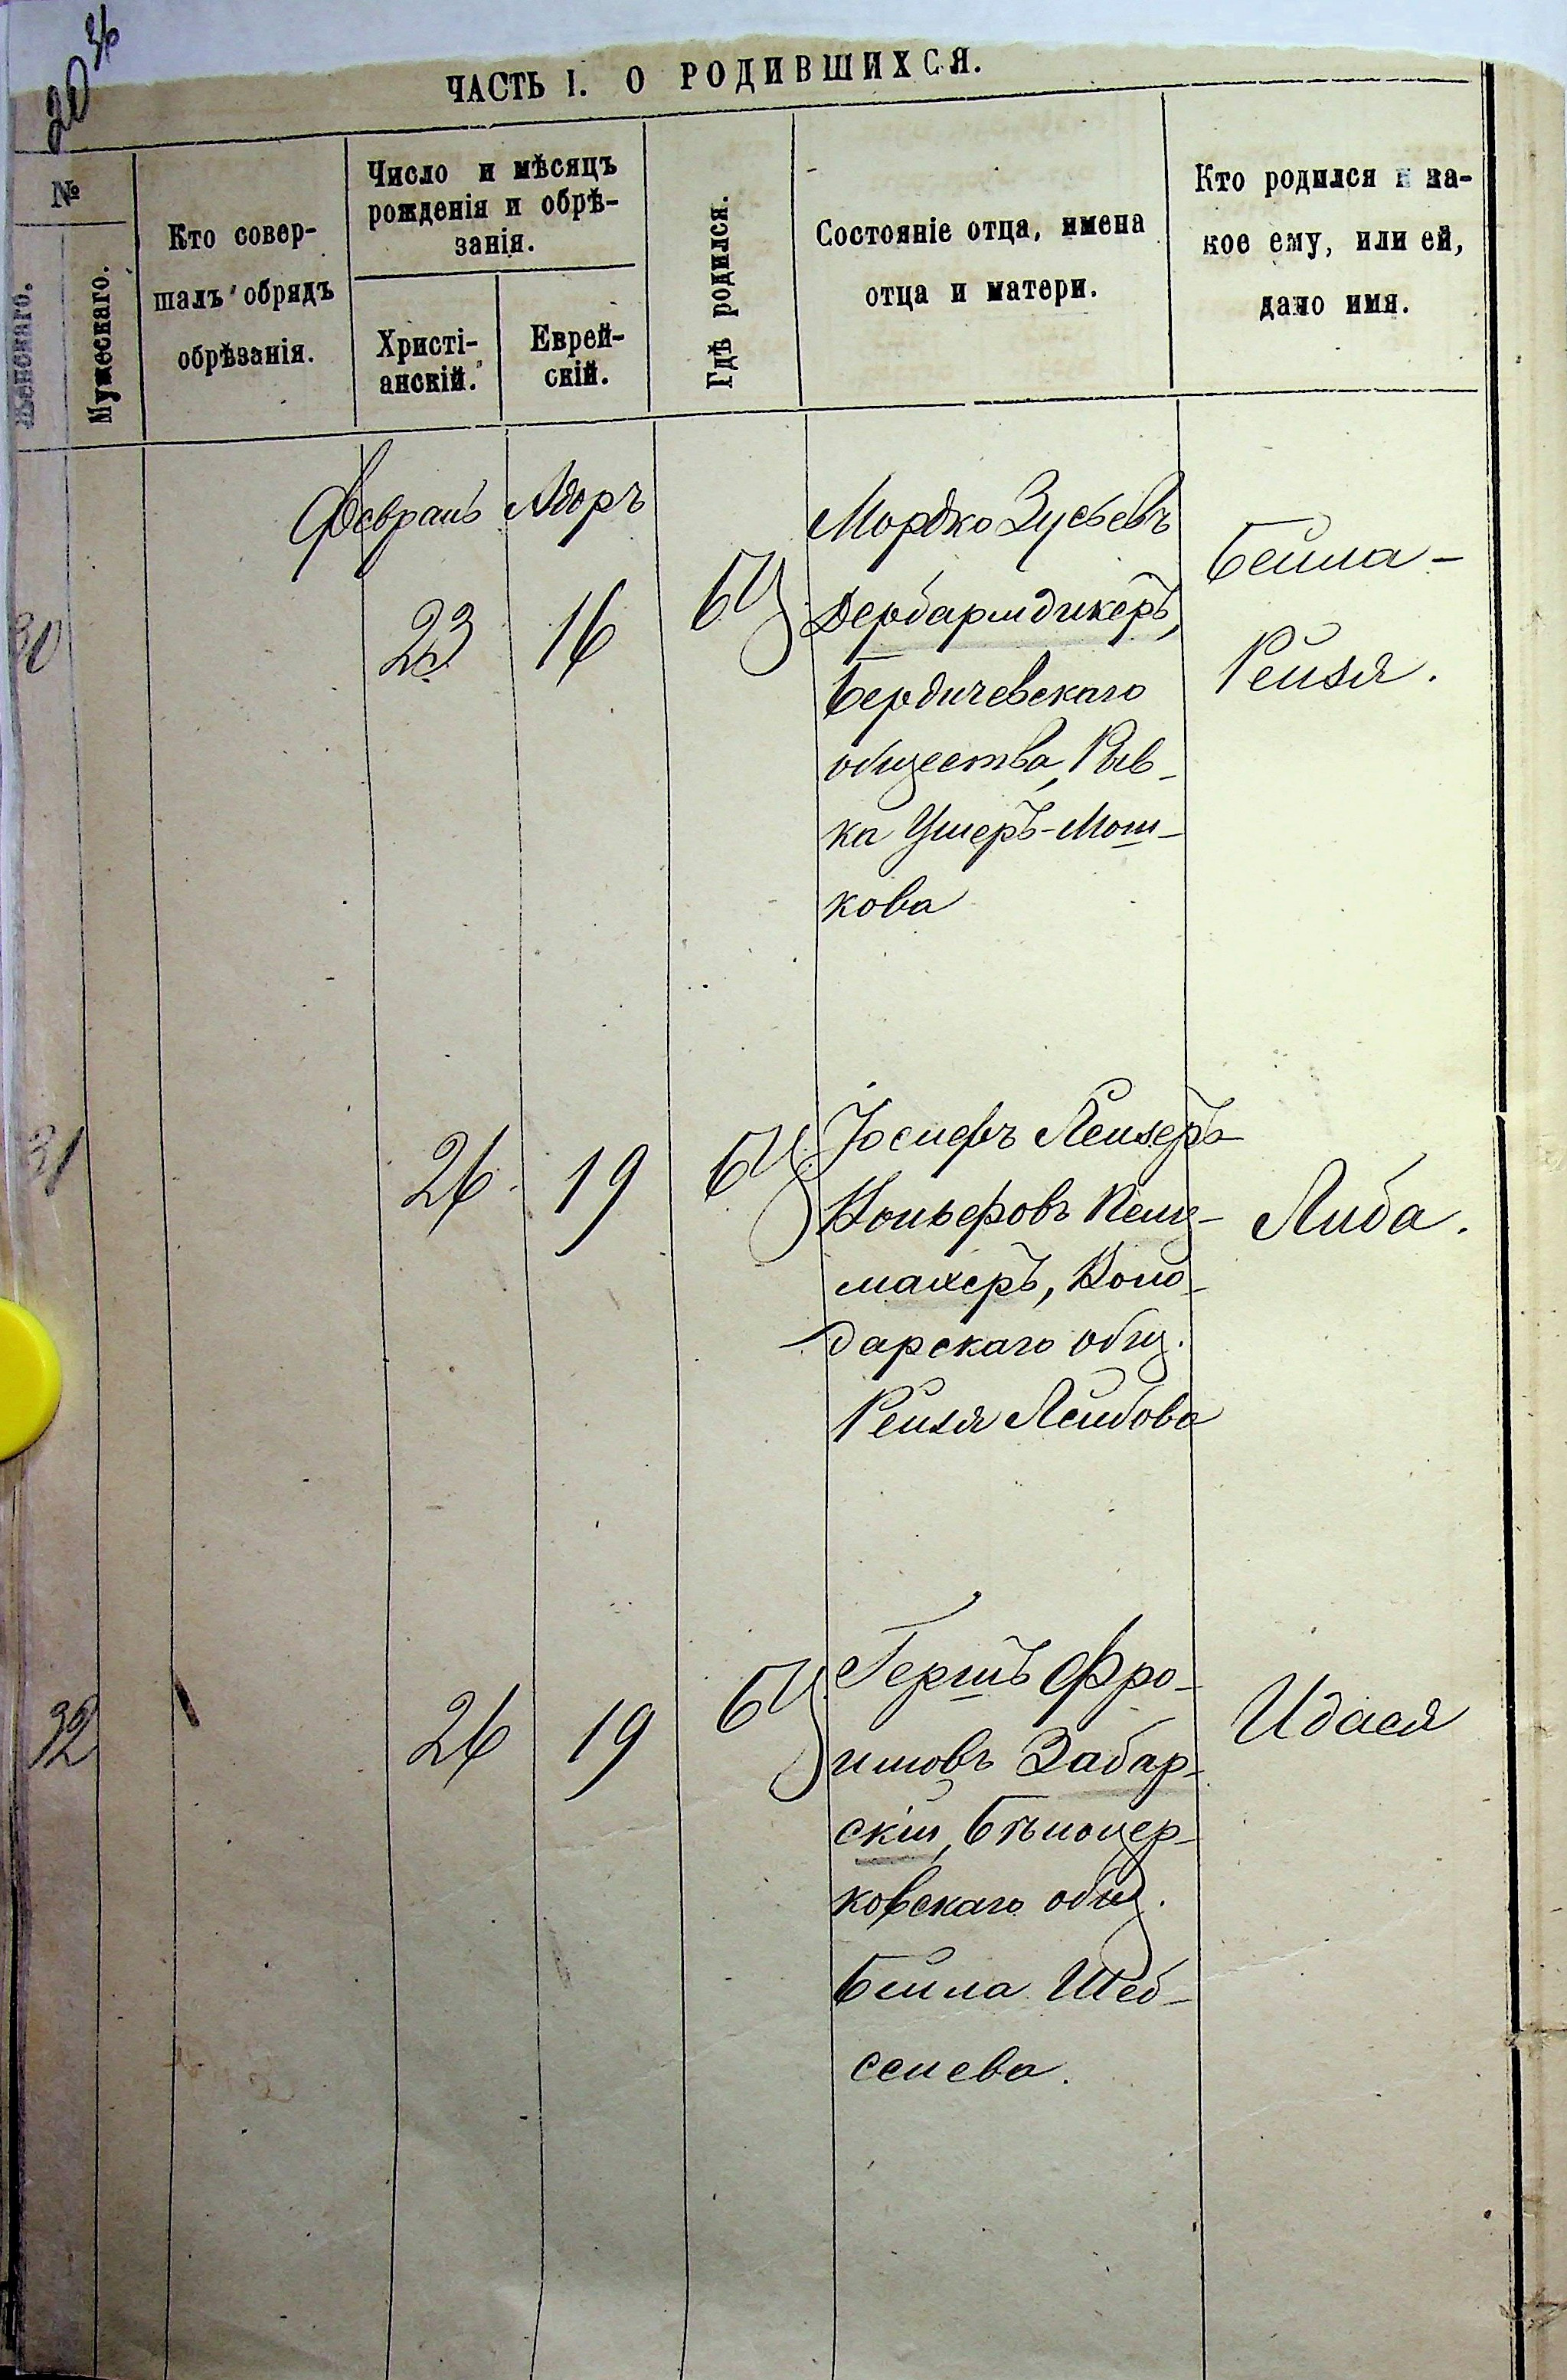 20 36
ЧАСТЬ I. О РОДИВШИХСЯ.
№
Женскаго.
Мужескаго.
Кто совер-
шалъ обрядъ
обрѣзанія.
Число и мѣсяцъ
рожденія и обрѣ-
занія.
Христі-
анскій.
Еврей-
скій.
Гдѣ родился.
Состояніе отца, имена
отца и матери.
Кто родился и ка-
кое ему, или ей,
дано имя.
Февраль Адоръ
30
23
16
БЦ
Мордко Зусьевъ
Дербармдикеръ,
Бердичевскаго
общества, Рыв-
ка Ушеръ-Мош-
кова
Бейла-
Рейзя.
31
26
19
БЦ
Іосифъ Лейзеръ
Вольфовъ Келиз-
махеръ, Воло-
дарскаго общ.
Рейзя Лейбова
Либа.
32
26
19
БЦ
Гершъ Фро-
имовъ Забар-
скій, Бѣлоцер-
ковскаго общ.
Бейла Шеб-
селева.
Идася